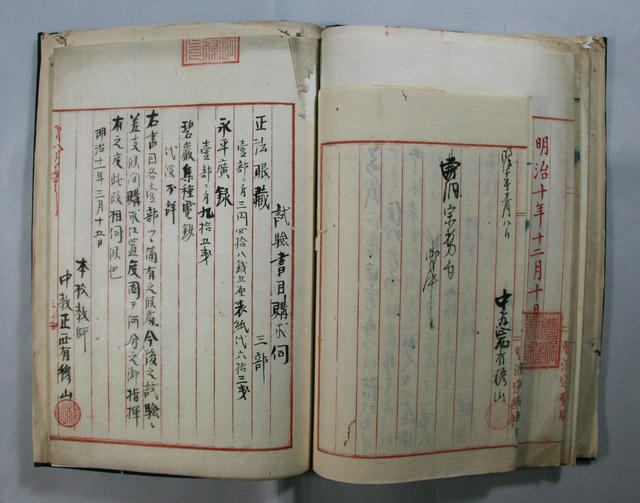 明治十年十二月十日
中教正西有穆山
試驗書目購求伺
正法眼藏 三部
壹部ニ付三円四拾八錢五厘表紙代六拾三戔
永平廣録
壹部ニ付九拾五戔
碧巌集種電鈔
代價不詳
右書目各壹部ツヽ備有之候處今後之試驗ニ
差支候間購求仕置度因テ何分之御指揮
有之度此段相伺候也
明治十一年三月十五日
本校教師
中教正西有穆山